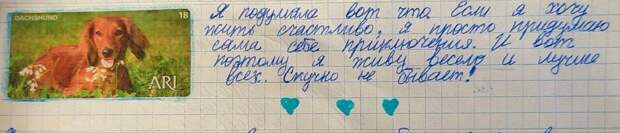 DACHSHUND 18
ARI
Я подумала вот что. Если я хочу
жить счастливо, я просто придумаю
сама себе приключения. И вот
поэтому я живу весело и лучше
всех. Скучно не бывает!